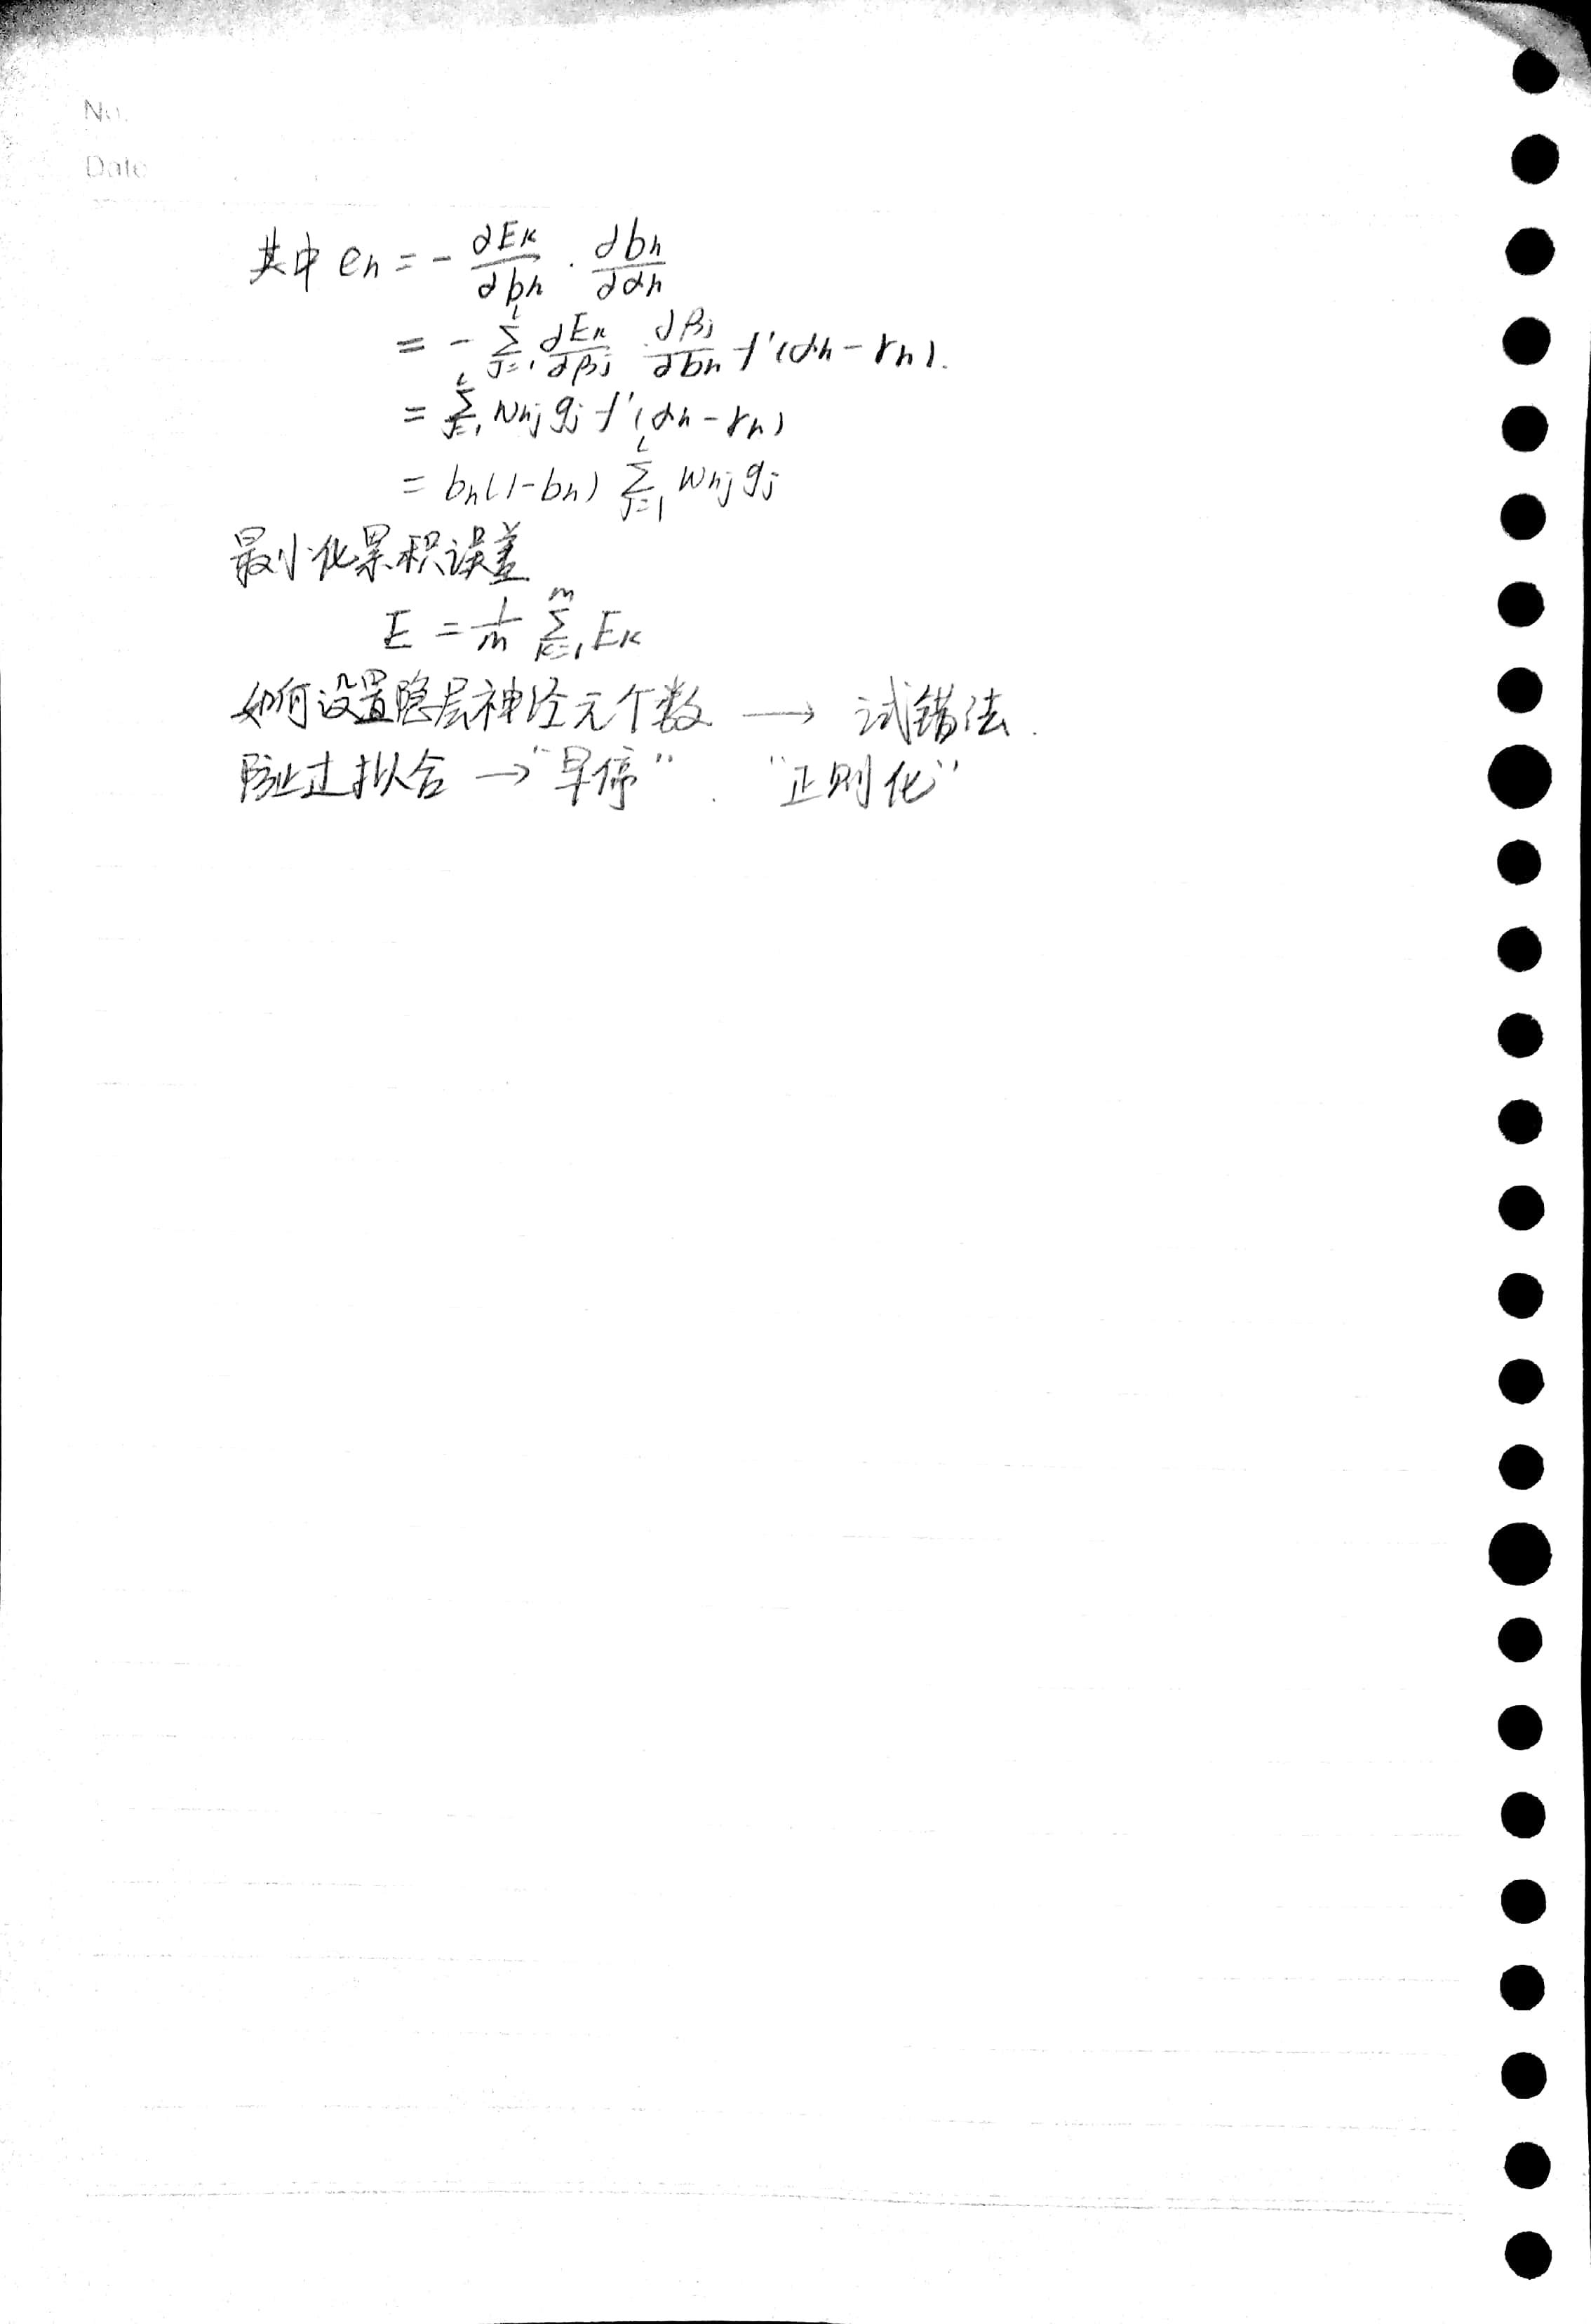 No.
Date
其中 eₕ = - ∂Eₖ/∂bₕ · ∂bₕ/∂αₕ
= - Σⱼ₌₁ˡ ∂Eₖ/∂βⱼ · ∂βⱼ/∂bₕ f'(αₕ - γₕ).
= Σⱼ₌₁ˡ wₕⱼ gⱼ f'(αₕ - γₕ)
= bₕ(1-bₕ) Σⱼ₌₁ˡ wₕⱼ gⱼ
最小化累积误差
E = 1/m Σₖ₌₁ᵐ Eₖ
如何设置隐层神经元个数 → 试错法.
防止过拟合 → "早停" . "正则化"